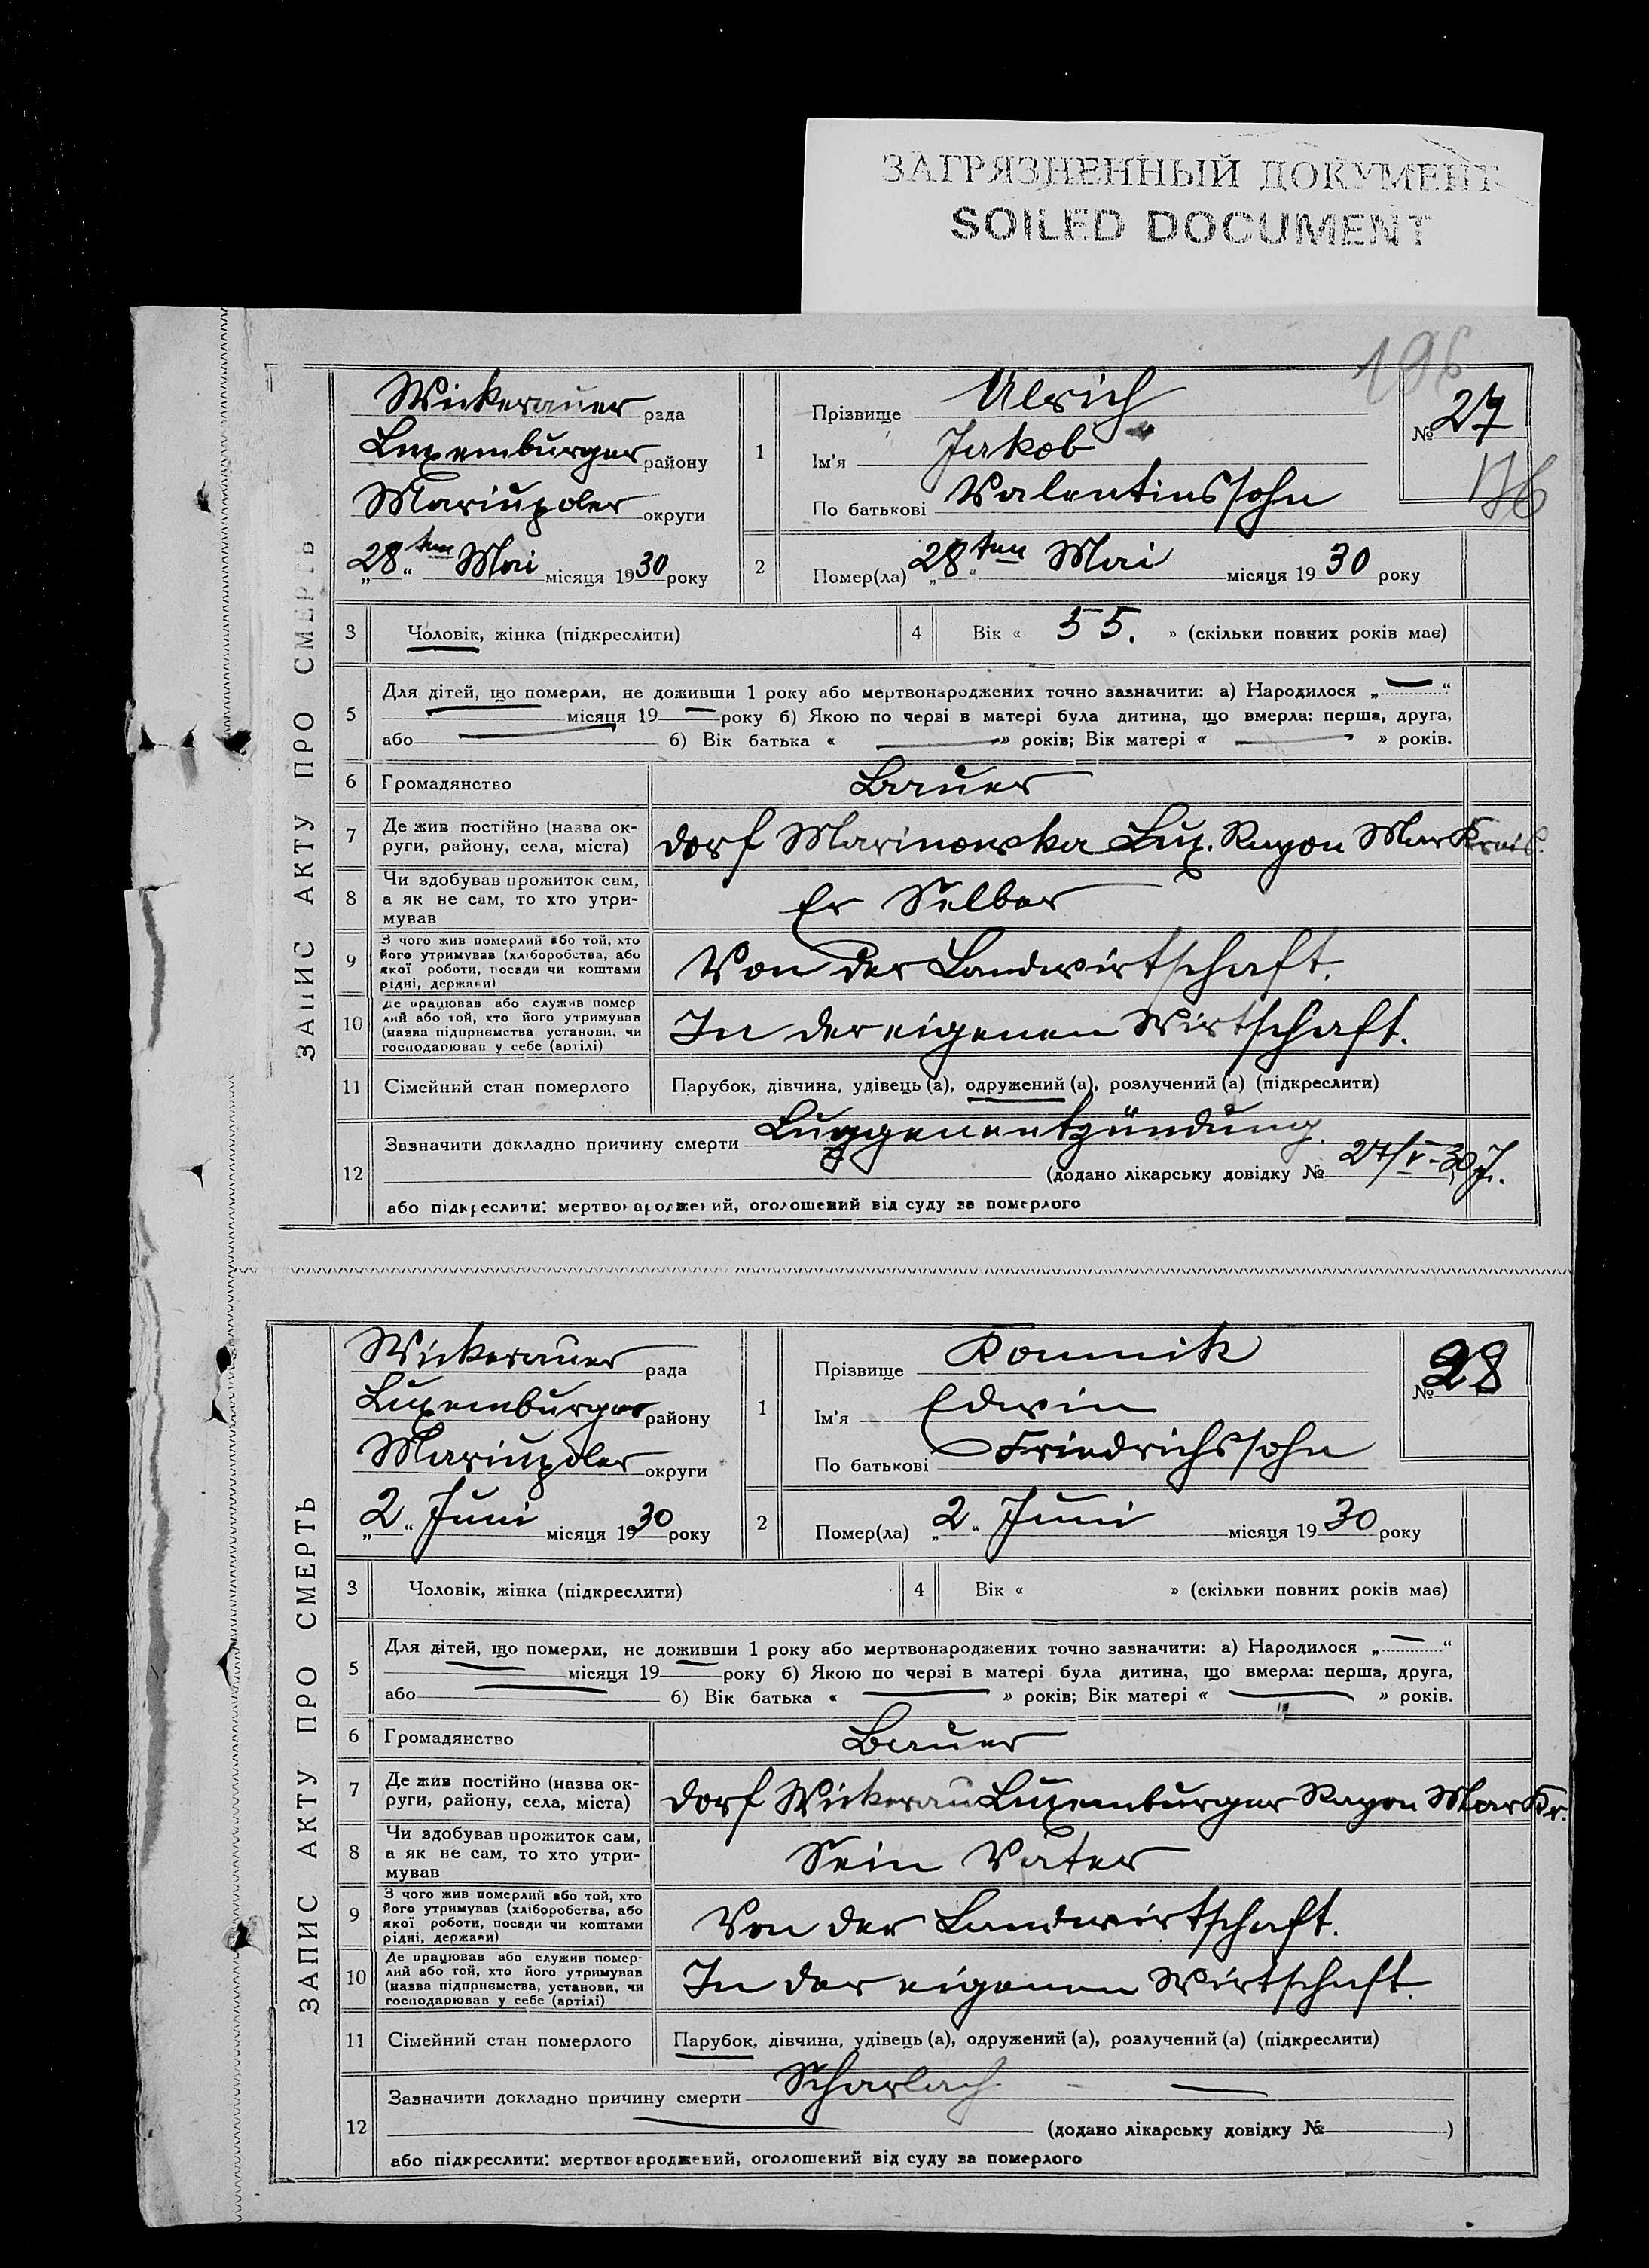 ЗАГРЯЗНЕННЫЙ ДОКУМЕНТ
SOILED DOCUMENT
196
ЗАПИС АКТУ ПРО СМЕРТЬ
Wickerauer рада
Luxemburger району
Mariupoler округи
„28“ten Mai місяця 1930 року
1
Прізвище Ulrich
Ім'я Jakob
По батькові Valentinssohn
№ 27
176
2
Помер(ла) „28“ten Mai місяця 1930 року
3 Чоловік, жінка (підкреслити)
4 Вік « 55. » (скільки повних років має)
5
Для дітей, що померли, не доживши 1 року або мертвонароджених точно зазначити: а) Народилося „—“
— місяця 19 — року б) Якою по черзі в матері була дитина, що вмерла: перша, друга,
або — б) Вік батька « — » років; Вік матері « — » років.
6 Громадянство Bauer
7 Де жив постійно (назва ок-
руги, району, села, міста) Dorf Marinowka Lux. Rayon Mar Kreis.
8 Чи здобував прожиток сам,
а як не сам, то хто утри-
мував Er Selber
9 З чого жив померлий або той, хто
його утримував (хліборобства, або
якої роботи, посади чи коштами
рідні, держави) Von der Landwirtschaft.
10 Де працював або служив помер
лий або той, хто його утримував
(назва підприємства установи, чи
господарював у себе (артілі) In der eigenen Wirtschaft.
11 Сімейний стан померлого Парубок, дівчина, удівець (а), одружений (а), розлучений (а) (підкреслити)
12
Зазначити докладно причину смерти Lungenentzündung.
(додано лікарську довідку № 27/V-30 J.
або підкреслити: мертвонароджений, оголошений від суду за померлого
ЗАПИС АКТУ ПРО СМЕРТЬ
Wickerauer рада
Luxemburger району
Mariupoler округи
„2“ Juni місяця 1930 року
1
Прізвище Romnik
Ім'я Edwin
По батькові Friedrichssohn
№ 28
2
Помер(ла) „2“ Juni місяця 1930 року
3 Чоловік, жінка (підкреслити)
4 Вік « » (скільки повних років має)
5
Для дітей, що померли, не доживши 1 року або мертвонароджених точно зазначити: а) Народилося „—“
— місяця 19 — року б) Якою по черзі в матері була дитина, що вмерла: перша, друга,
або — б) Вік батька « — » років; Вік матері « — » років.
6 Громадянство Bauer
7 Де жив постійно (назва ок-
руги, району, села, міста) Dorf Wickerau Luxemburger Rayon Mar Kr.
8 Чи здобував прожиток сам,
а як не сам, то хто утри-
мував Sein Vater
9 З чого жив померлий або той, хто
його утримував (хліборобства, або
якої роботи, посади чи коштами
рідні, держави) Von der Landwirtschaft.
10 Де працював або служив помер-
лий або той, хто його утримував
(назва підприємства, установи, чи
господарював у себе (артілі) In der eigenen Wirtschaft.
11 Сімейний стан померлого Парубок, дівчина, удівець (а), одружений (а), розлучений (а) (підкреслити)
12
Зазначити докладно причину смерти Scharlach —
— (додано лікарську довідку № )
або підкреслити: мертвонароджений, оголошений від суду за померлого